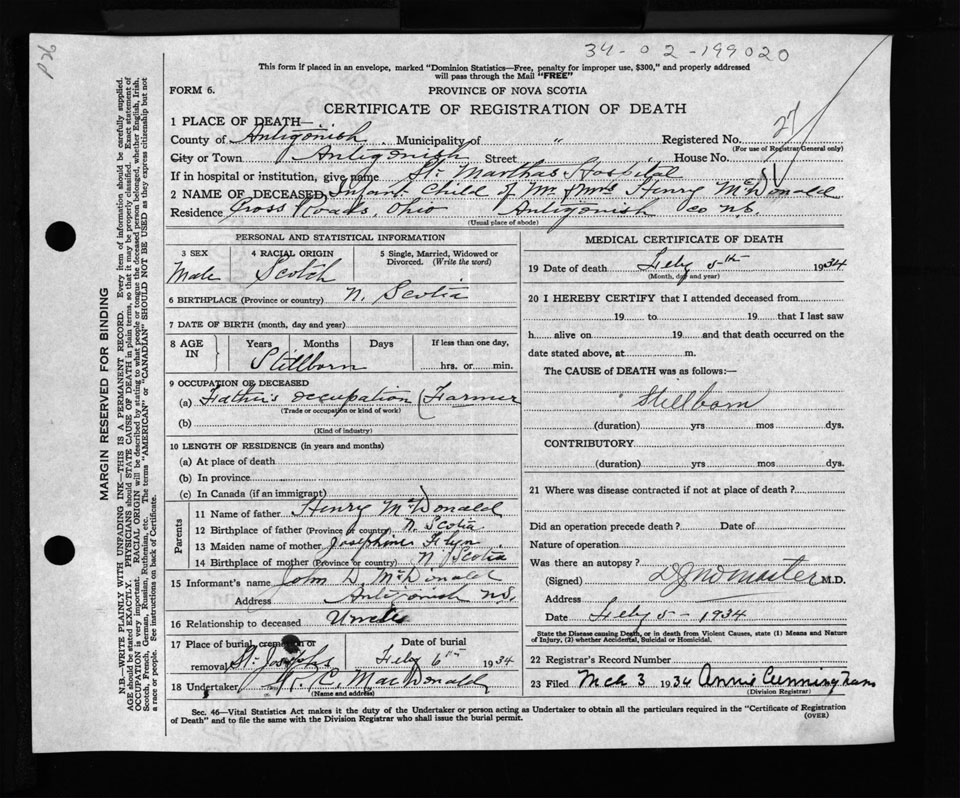 34-02-199020
This form if placed in an envelope, marked "Dominion Statistics—Free, penalty for improper use, $300," and properly addressed
will pass through the Mail "FREE"
FORM 6.
PROVINCE OF NOVA SCOTIA
CERTIFICATE OF REGISTRATION OF DEATH
1 PLACE OF DEATH—
County of Antigonish Municipality of " Registered No. 27
(For use of Registrar General only)
City or Town Antigonish Street House No.
If in hospital or institution, give name St. Marthas Hospital
2 NAME OF DECEASED Infant Child of Mr. & Mrs Henry McDonald
Residence Cross Roads, Ohio Antigonish co N.S.
(Usual place of abode)
PERSONAL AND STATISTICAL INFORMATION
3 SEX 4 RACIAL ORIGIN 5 Single, Married, Widowed or
Divorced. (Write the word)
Male Scotch
6 BIRTHPLACE (Province or country) N. Scotia
7 DATE OF BIRTH (month, day and year)
8 AGE IN Years Months Days If less than one day,
Stillborn hrs. or min.
9 OCCUPATION OF DECEASED
(a) Father's occupation (Farmer
(Trade or occupation or kind of work)
(b)
(Kind of industry)
10 LENGTH OF RESIDENCE (in years and months)
(a) At place of death
(b) In province
(c) In Canada (if an immigrant)
Parents
11 Name of father Henry McDonald
12 Birthplace of father (Province or country) N. Scotia
13 Maiden name of mother Josephine
14 Birthplace of mother (Province or country) N Scotia
15 Informant's name John D. McDonald
Address Antigonish N.S.
16 Relationship to deceased Uncle
17 Place of burial, cremation or Date of burial
removal St. Josephs Feby 6th 1934
18 Undertaker C. MacDonald
(Name and address)
MEDICAL CERTIFICATE OF DEATH
19 Date of death Feby 5th 1934
(Month, day and year)
20 I HEREBY CERTIFY that I attended deceased from
19 to 19 that I last saw
h alive on 19 and that death occurred on the
date stated above, at m.
The CAUSE of DEATH was as follows:—
Stillborn
(duration) yrs mos dys.
CONTRIBUTORY
(duration) yrs mos dys.
21 Where was disease contracted if not at place of death?
Did an operation precede death? Date of
Nature of operation
Was there an autopsy?
(Signed) M.D.
Address
Date Feby 5- 1934
State the Disease causing Death, or in death from Violent Causes, state (1) Means and Nature
of Injury, (2) whether Accidental, Suicidal or Homicidal.
22 Registrar's Record Number
23 Filed Mch 3 1934 Annie Cunningham
(Division Registrar)
Sec. 46—Vital Statistics Act makes it the duty of the Undertaker or person acting as Undertaker to obtain all the particulars required in the "Certificate of Registration
of Death" and to file the same with the Division Registrar who shall issue the burial permit.
(OVER)
MARGIN RESERVED FOR BINDING
N.B.—WRITE PLAINLY WITH UNFADING INK—THIS IS A PERMANENT RECORD. Every item of information should be carefully supplied.
AGE should be stated EXACTLY. PHYSICIANS should STATE CAUSE OF DEATH in plain terms, so that it may be properly classified. Exact statement of
OCCUPATION is very important. RACIAL ORIGIN will be described by stating to what people or tongue the deceased person belonged, whether English, Irish,
Scotch, French, German, Russian, Ruthenian, etc. The terms "AMERICAN" or "CANADIAN" SHOULD NOT BE USED as they express citizenship but not
a race or people. See instructions on back of Certificate.